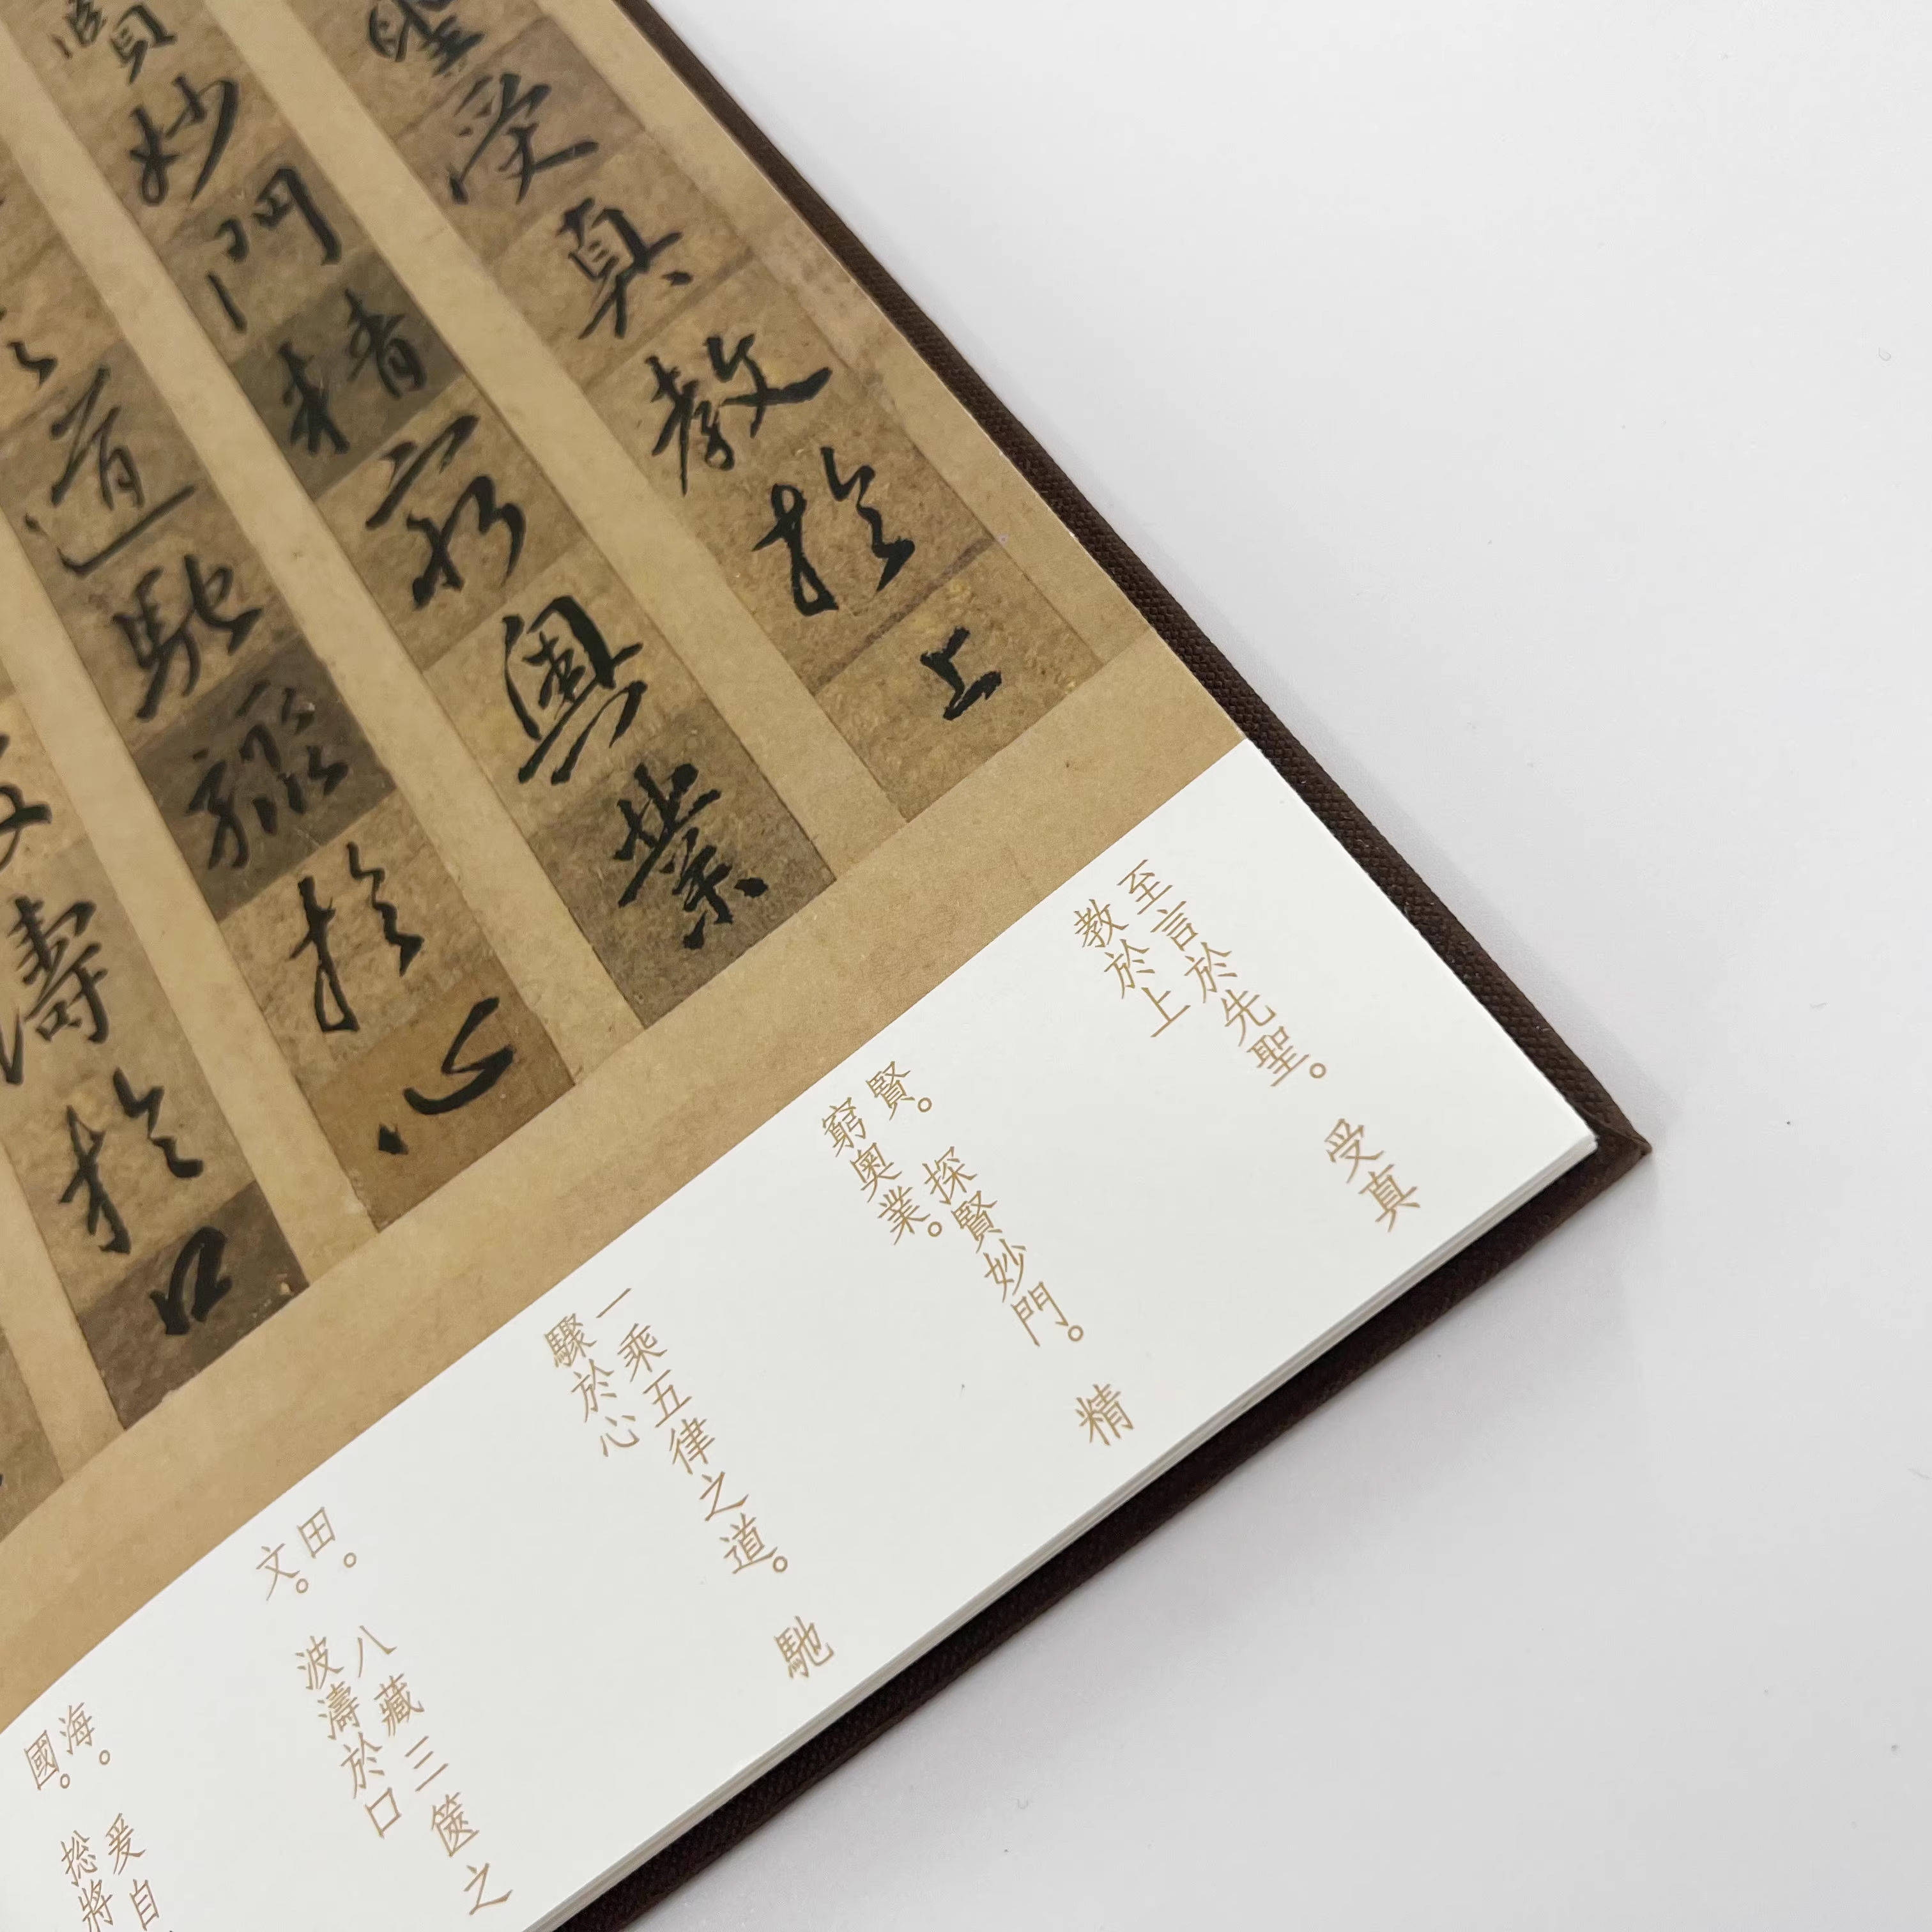 聖受真教於上
賾妙門精窮奧業
道馳驟於心
濤於口
至言於先聖。受真
教於上
賢。探賢妙門。精
窮奧業。
一乘五律之道。馳
驟於心
田。八藏三篋之
文。波濤於口
海。爰自
國。捴將